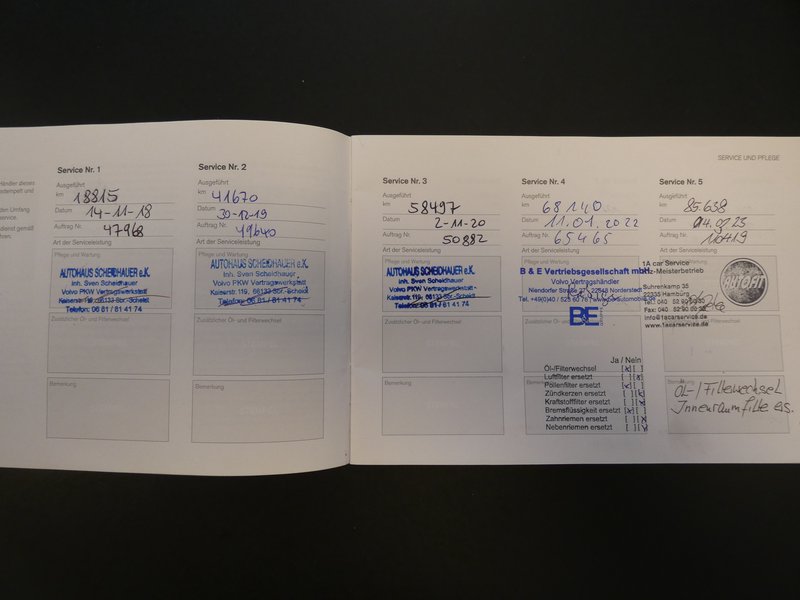 SERVICE UND PFLEGE
Händler dieses
Service Nr. 1
Ausgeführt
km 18815
Datum 14-11-18
Auftrag Nr. 47968
Art der Serviceleistung
Pflege und Wartung
AUTOHAUS SCHEIDHAUER e.K.
Inh. Sven Scheidhauer
Volvo PKW Vertragswerkstatt
Kaiserstr. 119, 66133 Sbr.-Scheidt
Telefon: 06 81 / 81 41 74
Zusätzlicher Öl- und Filterwechsel
Bemerkung
Service Nr. 2
Ausgeführt
km 41670
Datum 30-12-19
Auftrag Nr. 49640
Art der Serviceleistung
Pflege und Wartung
AUTOHAUS SCHEIDHAUER e.K.
Inh. Sven Scheidhauer
Volvo PKW Vertragswerkstatt
Kaiserstr. 119, 66133 Sbr.-Scheidt
Telefon: 06 81 / 81 41 74
Zusätzlicher Öl- und Filterwechsel
Bemerkung
Service Nr. 3
Ausgeführt
km 58497
Datum 2-11-20
Auftrag Nr. 50882
Art der Serviceleistung
Pflege und Wartung
AUTOHAUS SCHEIDHAUER e.K.
Inh. Sven Scheidhauer
Volvo PKW Vertragswerkstatt
Kaiserstr. 119, 66133 Sbr.-Scheidt
Telefon: 06 81 / 81 41 74
Zusätzlicher Öl- und Filterwechsel
Bemerkung
Service Nr. 4
Ausgeführt
km 68140
Datum 11.01.2022
Auftrag Nr. 65465
Art der Serviceleistung
Pflege und Wartung
B & E Vertriebsgesellschaft mbH
Volvo Vertragshändler
Niendorfer Straße 22848 Norderstedt
Tel. +49(0)40 / 523 60 76
B&E
Zusätzlicher Öl- und Filterwechsel
Ja / Nein
Öl-/Filterwechsel [x] [ ]
Luftfilter ersetzt [ ] [x]
Pollenfilter ersetzt [x] [ ]
Zündkerzen ersetzt [ ] [x]
Kraftstofffilter ersetzt [ ] [x]
Bremsflüssigkeit ersetzt [x] [ ]
Zahnriemen ersetzt [ ] [x]
Nebenriemen ersetzt [ ] [x]
Service Nr. 5
Ausgeführt
km 85.638
Datum 04.07.23
Auftrag Nr. 10419
Art der Serviceleistung
1A car Service
Kfz-Meisterbetrieb
Suhrenkamp 35
22335 Hamburg
Tel.: 040
Fax: 040
info@1acarservice.de
www.1acarservice.de
Bemerkung
Öl-/Filterwechsel
Innenraumfilter ers.